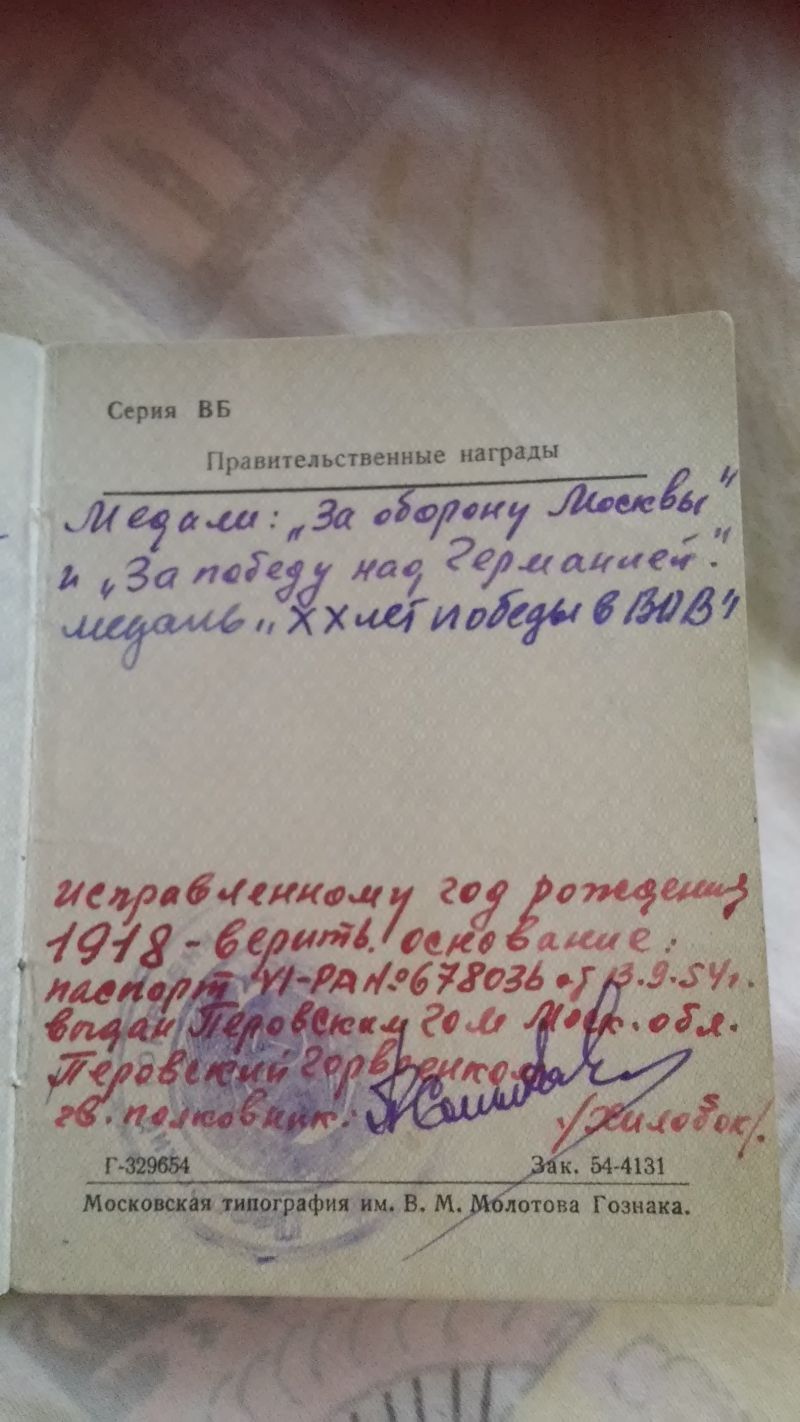 Серия ВБ
Правительственные награды
Медали: „За оборону Москвы"
и „За победу над Германией".
медаль „XX лет победы в ВОВ"
исправленному год рождения
1918 - верить. основание:
паспорт VI-РА № 678036 от 13.9.54г.
выдан Перовским гом Моск. обл.
Перовский Горвоенком
гв. полковник: /Хилобок/.
Г-329654 Зак. 54-4131
Московская типография им. В. М. Молотова Гознака.